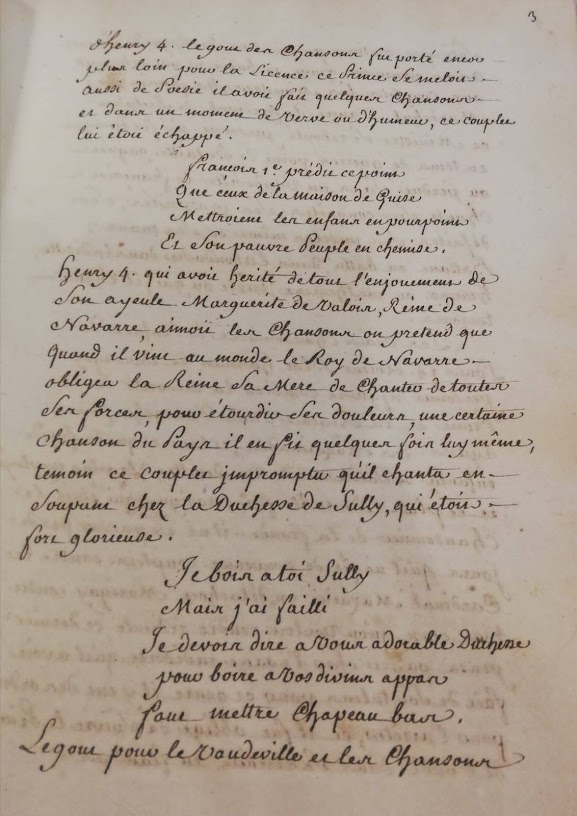 3
d'henry 4. le gout des Chansons fut porté encor
plus loin pour la Licence ce Prince se meloit
aussi de Poesie il avoit fait quelques Chansons
et dans un moment de verve ou d'humeur, ce couplet
lui étoit échappé.
francois 1er prédit ce point
Que ceux de la maison de Guise
Mettroient les enfans en pourpoint
Et son pauvre Peuple en chemise.
henry 4. qui avoit herité de tout l'enjouement de
Son ayeule Marguerite de Valois, Reine de
Navarre, aimoit les Chansons on pretend que
quand il vint au monde le Roy de Navarre
obligea la Reine sa Mere de Chanter de toutes
ses forces, pour étourdir ses douleurs, une certaine
chanson du Pays il en fit quelques fois luy même,
temoin ce couplet jmpromptu qu'il chanta en
soupant chez la Duchesse de Sully, qui étoit
fort glorieuse.
Je bois a toi Sully
Mais j'ai failli
Je devois dire a vous adorable Duchesse
pour boire a vos divins appas
faut mettre Chapeau bas.
Le gout pour le Vaudeville et les Chansons